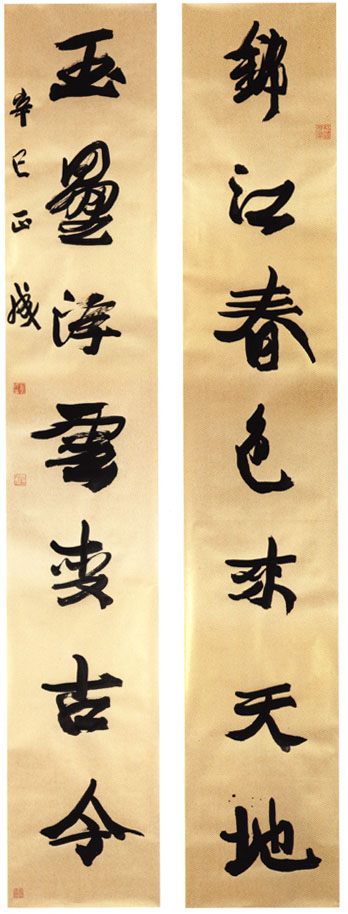 錦江春色來天地
玉壘浮雲變古今
辛巳正成